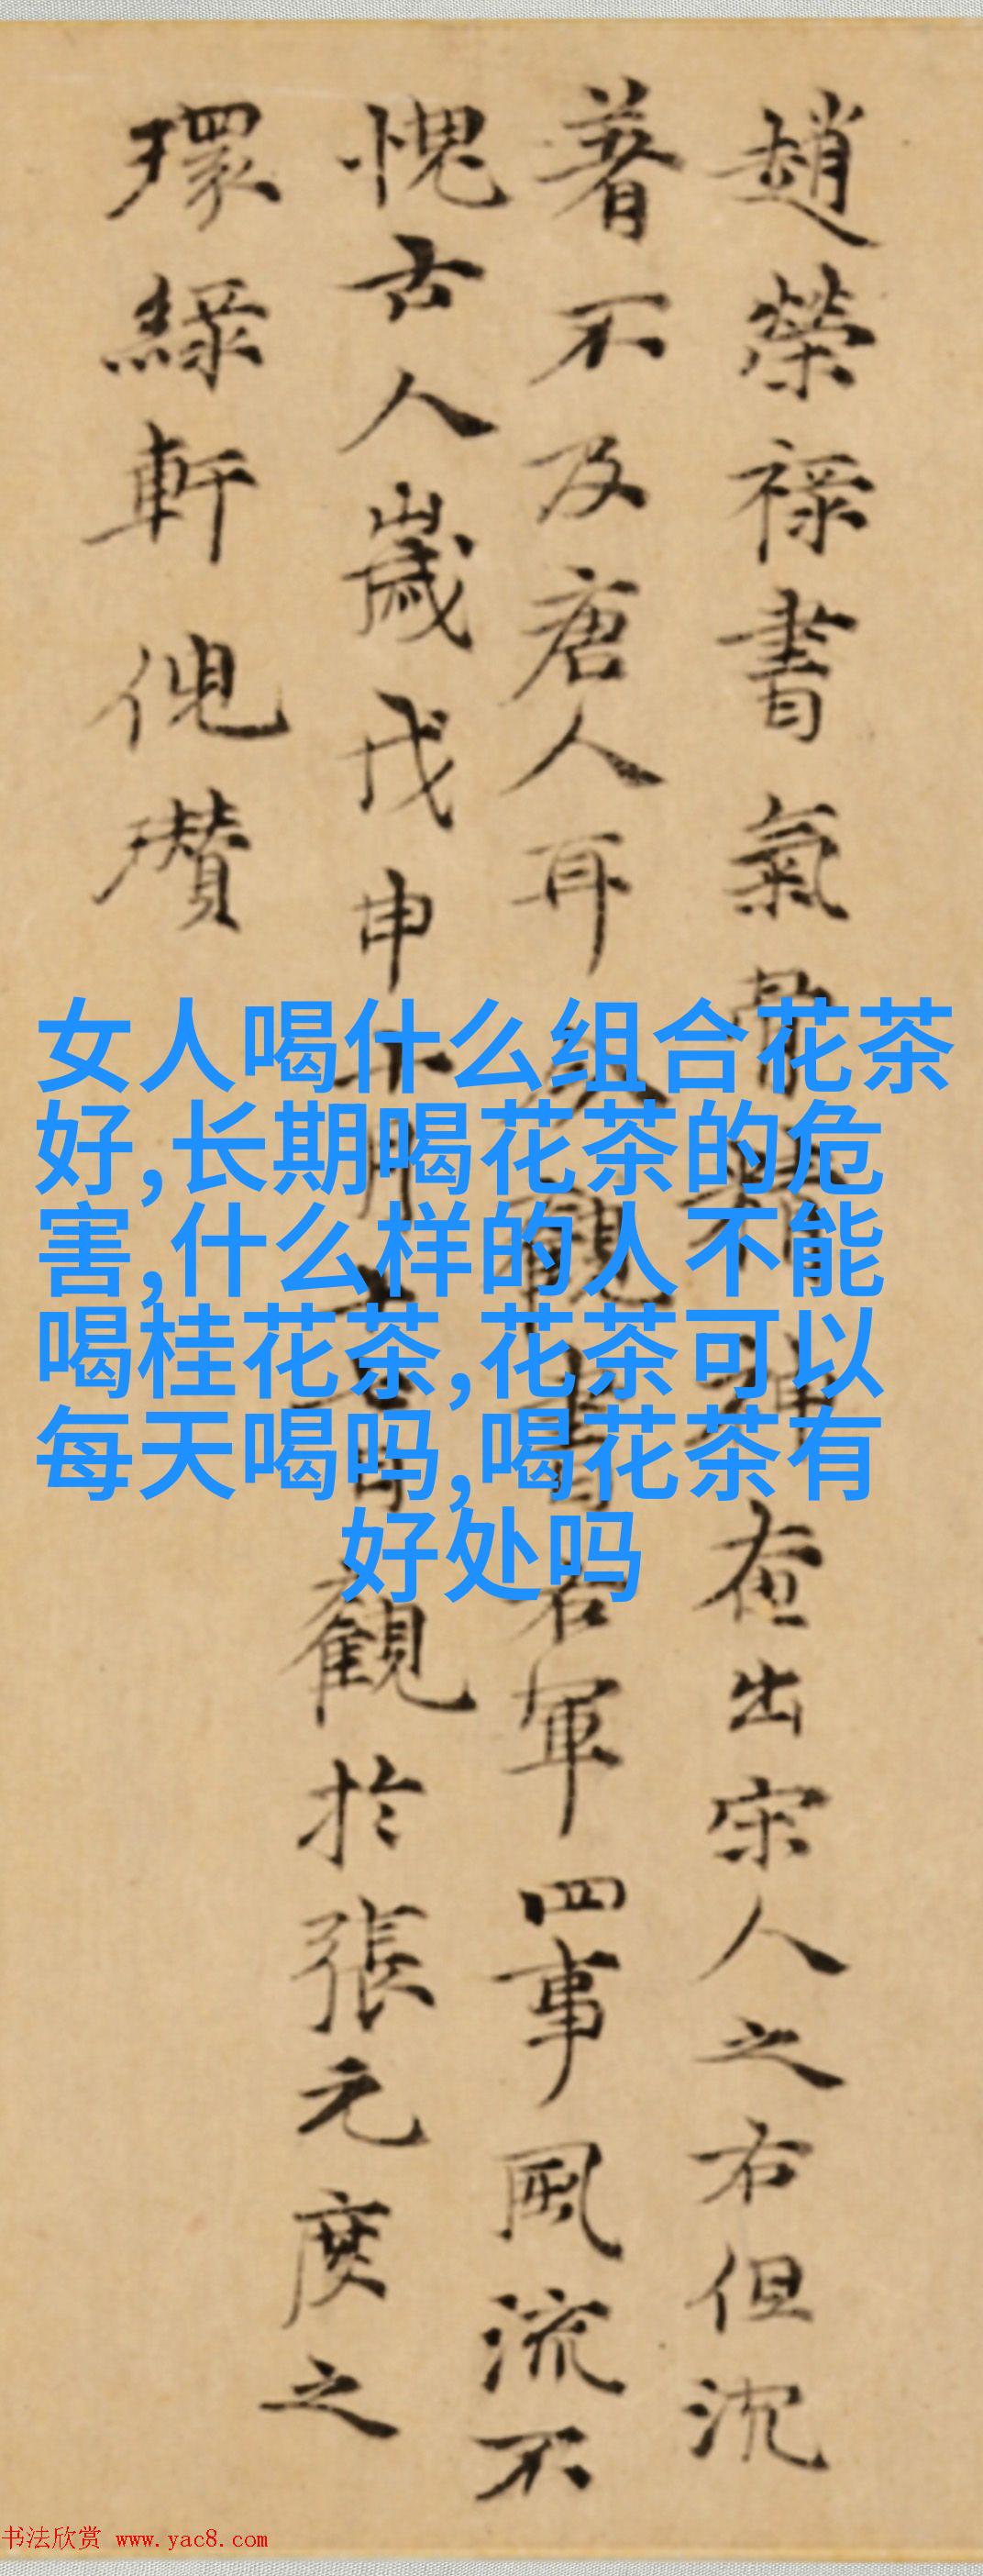 趙榮祿書氣骨精神盡出宋人之右但沉
著不及唐人耳觀書右軍四事風流不
愧古人歲戊申十月七日觀於張元度之
環綠軒倪瓚
女人喝什么组合花茶
好,长期喝花茶的危
害,什么样的人不能
喝桂花茶,花茶可以
每天喝吗,喝花茶有
好处吗
书法欣赏 www.yac8.com